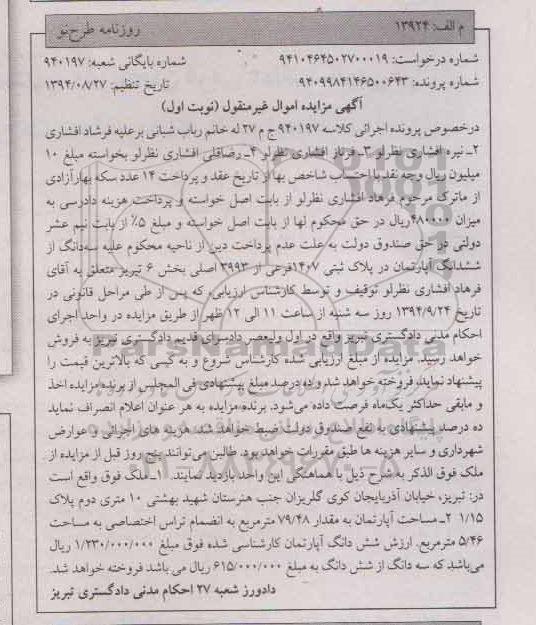 م الف: ۱۳۹۲۴
روزنامه طرح نو
شماره درخواست: ۹۴۱۰۴۶۴۵۰۲۷۰۰۰۱۹
شماره بایگانی شعبه: ۹۴۰۱۹۷
شماره پرونده: ۹۴۰۹۹۸۴۱۴۶۵۰۰۶۴۳
تاریخ تنظیم: ۱۳۹۴/۰۸/۲۷
آگهی مزایده اموال غیرمنقول (نوبت اول)
درخصوص پرونده اجرائی کلاسه ۹۴۰۱۹۷ ج م ۲۷ له خانم رباب شبانی برعلیه فرشاد افشاری
۲ـ نیره افشاری نظرلو ۳ـ فرناز افشاری نظرلو ۴ـ رضاقلی افشاری نظرلو بخواسته مبلغ ۱۰
میلیون ریال وجه نقد با احتساب شاخص بها از تاریخ عقد و پرداخت ۱۴ عدد سکه بهارآزادی
از ماترک مرحوم فرهاد افشاری نظرلو از بابت اصل خواسته و پرداخت هزینه دادرسی به
میزان ۴۸۰۰۰۰ریال در حق محکوم لها از بابت اصل خواسته و مبلغ ۵٪ از بابت نیم عشر
دولتی در حق صندوق دولت به علت عدم پرداخت دین از ناحیه محکوم علیه سه‌دانگ از
ششدانگ آپارتمان در پلاک ثبتی ۱۴۰۷فرعی از ۳۹۹۳ اصلی بخش ۶ تبریز متعلق به آقای
فرهاد افشاری نظرلو توقیف و توسط کارشناس ارزیابی، که پس از طی مراحل قانونی در
تاریخ ۱۳۹۴/۹/۲۴ روز سه شنبه از ساعت ۱۱ الی ۱۲ ظهر از طریق مزایده در واحد اجرای
احکام مدنی دادگستری تبریز واقع در اول ولیعصر دادسرای قدیم دادگستری تبریز به فروش
خواهد رسید. مزایده از مبلغ ارزیابی شده کارشناس شروع و به کسی که بالاترین قیمت را
پیشنهاد نماید، فروخته خواهد شد و ده درصد مبلغ پیشنهادی فی المجلس از برنده مزایده اخذ
و مابقی حداکثر یک‌ماه فرصت داده می‌شود. برنده مزایده به هر عنوان اعلام انصراف نماید
ده درصد پیشنهادی به نفع صندوق دولت ضبط خواهد شد. هزینه های اجرائی و عوارض
شهرداری و سایر هزینه ها طبق مقررات خواهد بود. طالبین می‌توانند پنج روز قبل از مزایده از
ملک فوق الذکر به شرح ذیل با هماهنگی این واحد بازدید نمایند. ۱ـ ملک فوق واقع است
در: تبریز، خیابان آذربایجان کوی گلریزان جنب هنرستان شهید بهشتی ۱۰ متری دوم پلاک
۱/۱۵ ۲ـ مساحت آپارتمان به مقدار ۷۹/۴۸ مترمربع به انضمام تراس اختصاصی به مساحت
۵/۴۶ مترمربع. ارزش شش دانگ آپارتمان کارشناسی شده فوق مبلغ ۱/۲۳۰/۰۰۰/۰۰۰ ریال
می‌باشد که سه دانگ از شش دانگ به مبلغ ۶۱۵/۰۰۰/۰۰۰ ریال می باشد فروخته خواهد شد.
دادورز شعبه ۲۷ احکام مدنی دادگستری تبریز